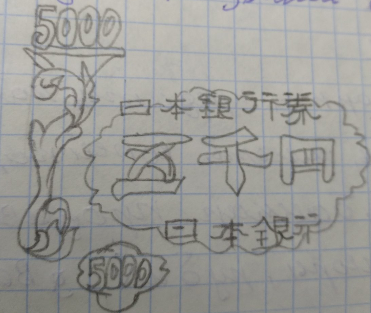 5000
日本銀行券
五千円
日本銀行
5000